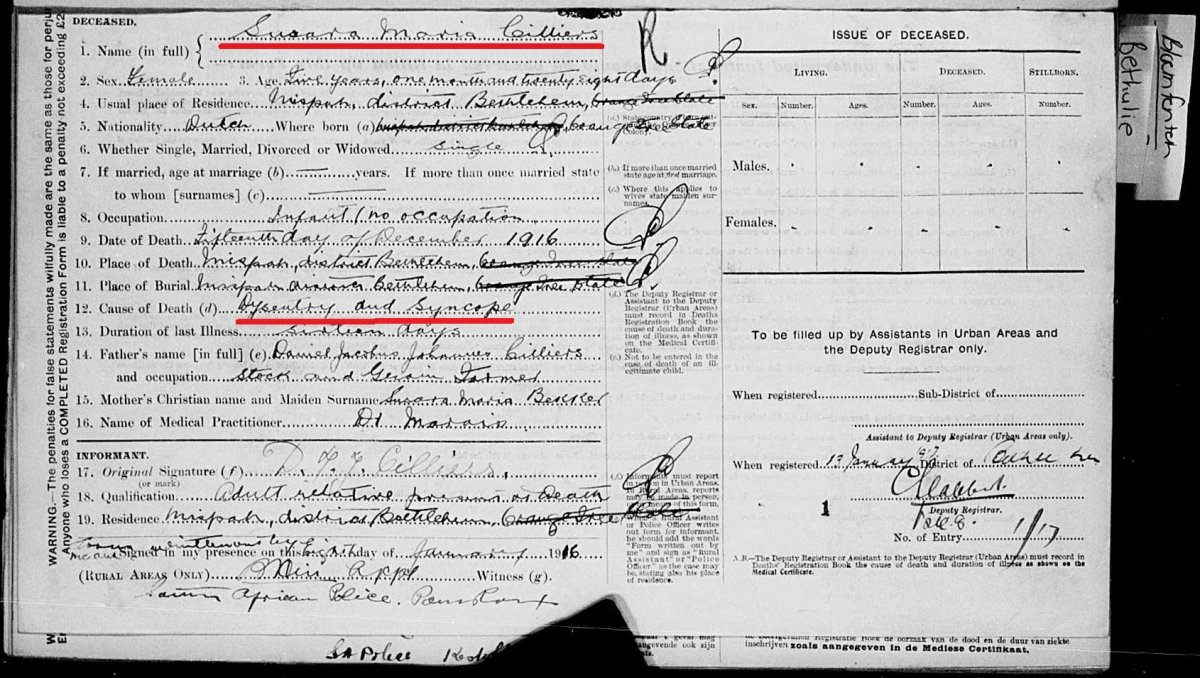 DECEASED.
1. Name (in full) { Susara Maria Cilliers
2. Sex. Female 3. Age. Five years, one month and twenty eight days
4. Usual place of Residence. Mispah, district Bethlehem, Orange Free State
5. Nationality Dutch Where born (a) Orange Free State
6. Whether Single, Married, Divorced or Widowed single
7. If married, age at marriage (b) years. If more than once married state
to whom [surnames] (c)
8. Occupation Infant / no occupation
9. Date of Death. Fifteenth day of December 1916
10. Place of Death. Mispah, district Bethlehem, Orange Free State
11. Place of Burial Mispah district Bethlehem, Orange Free State
12. Cause of Death (d) Dysentry and Syncope
13. Duration of last Illness. sixteen days
14. Father's name [in full] (e) Daniel Jacobus Johannes Cilliers
and occupation Stock and Grain Farmer
15. Mother's Christian name and Maiden Surname Susara Maria
16. Name of Medical Practitioner Dr Marais
INFORMANT.
17. Original Signature (f) Cilliers
(or mark)
18. Qualification Adult relative present at Death
19. Residence Mispah, district Bethlehem, Orange Free State
Signed in my presence on this day of January 1916
(RURAL AREAS ONLY) Witness (g).
South African Police.
SA Police
WARNING.—The penalties for false statements wilfully made are the same as those for perjur
Anyone who loses a COMPLETED Registration Form is liable to a penalty not exceeding £2
(b) If more than once married state age at first marriage.
(c) Where this applies to wives state maiden surnames.
(d.) The Deputy Registrar or Assistant to the Deputy Registrar (Urban Areas) must record in Deaths Registration Book the cause of death and duration of illness, as shown on the Medical Certificate.
(e.) Not to be entered in the case of death of an illegitimate child.
ISSUE OF DECEASED.
LIVING. DECEASED. STILLBORN.
Sex. Number. Ages. Number. Ages. Number.
Males.
Females.
To be filled up by Assistants in Urban Areas and
the Deputy Registrar only.
When registered Sub-District of
Assistant to Deputy Registrar (Urban Areas only).
When registered 13 January District of
1 Deputy Registrar.
No. of Entry 1/17
N.B.—The Deputy Registrar or Assistant to the Deputy Registrar (Urban Areas) must record in
Deaths' Registration Book the cause of death and duration of illness as shown on the
Medical Certificate.
Registratie Boek de oorzaak van de dood en de duur van ziekte
inschrijven zoals aangegeven in de Mediese Certifikaat.
Bethulie